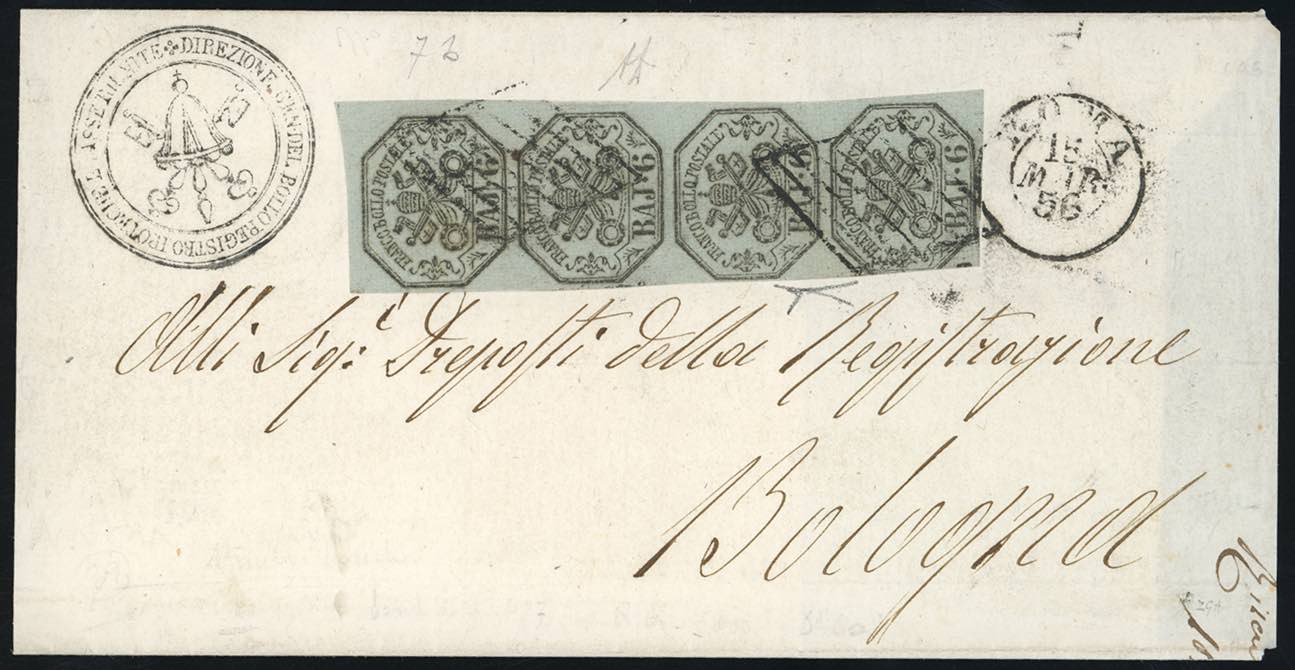 DIREZIONE GEN. DEL BOLLO REGISTRO IPOTECHE E TASSE RIUNITE
73
FRANCO BOLLO POSTALE BAJ. 6
FRANCO BOLLO POSTALE BAJ. 6
FRANCO BOLLO POSTALE BAJ. 6
FRANCO BOLLO POSTALE BAJ. 6
ROMA
15
MAR
56
Alli Sigi: Preposti della Registrazione
Bologna